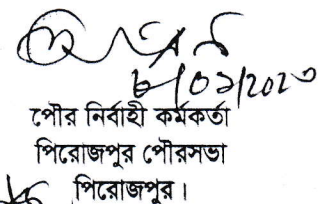 ৮/০১/২০২৩
পৌর নির্বাহী কর্মকর্তা
পিরোজপুর পৌরসভা
পিরোজপুর।